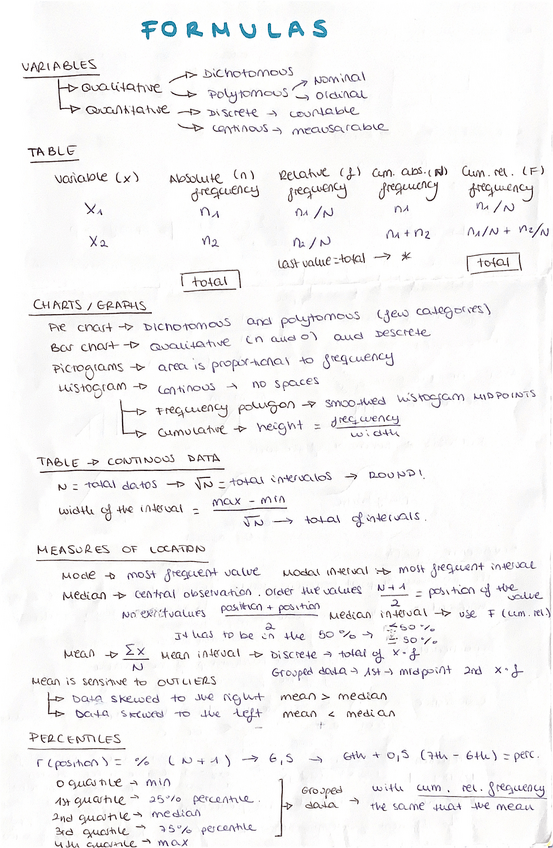 FORMULAS
VARIABLES
Qualitative → Dichotomous
→ Polytomous → Nominal
→ Ordinal
Quantitative → Discrete → countable
→ continous → meausarable
TABLE
Variable (x) Absolute (n) frequency Relative (f) frequency Cum. abs. (N) frequency Cum. rel. (F) frequency
X₁ n₁ n₁/N n₁ n₁/N
X₂ n₂ n₂/N n₁+n₂ n₁/N + n₂/N
last value = total → *
total total
CHARTS / GRAPHS
Pie chart → Dichotomous and polytomous (few categories)
Bar chart → Qualitative (n and o) and Descrete
Pictograms → area is proportional to frequency
Histogram → continous → no spaces
→ Frequency polugon → smoothed histogram MIDPOINTS
→ Cumulative → height = frequency / width
TABLE → CONTINOUS DATA
N = total datos → √N = total intervalos → ROUND!
width of the interval = max - min / √N → total of intervals.
MEASURES OF LOCATION
Mode → most frequent value Modal interval → most frequent interval
Median → central observation. Order the values N+1 / 2 = position of the value
No exict values position + position / 2 Median interval → use F (cum. rel)
It has to be in the 50% → ≤50%
≥50%
Mean → Σx / N Mean interval → Discrete → total of x·f
Grouped data → 1st → midpoint 2nd x·f
Mean is sensitive to OUTLIERS
→ Data skewed to the right mean > median
→ Data skewed to the left mean < median
PERCENTILES
r (position) = % (N+1) → 6,5 → 6th + 0,5 (7th - 6th) = perc.
0 quartile → min
1st quartile → 25% percentile.
2nd quartile → median
3rd quartile → 75% percentile
4th quartile → max
Grouped data → with cum. rel. frequency
the same that the mean